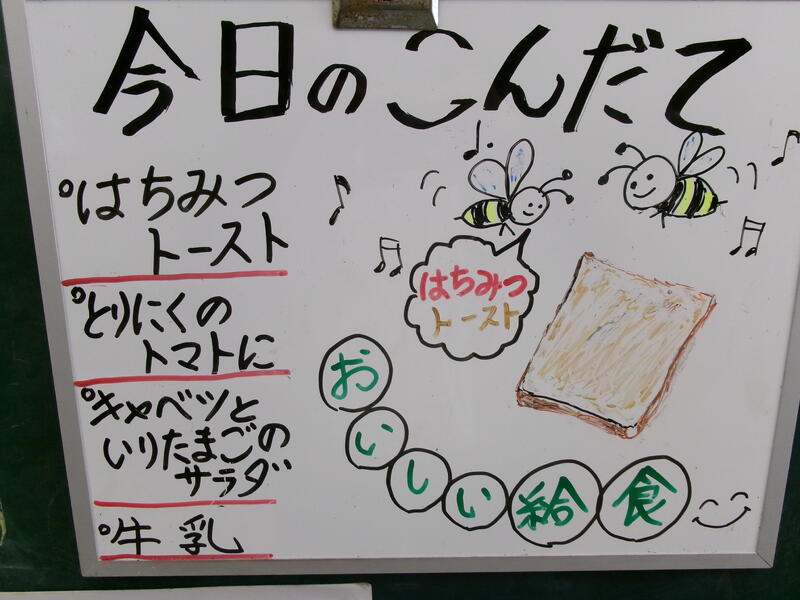 今日のこんだて
°はちみつ
トースト
°とりにくの
トマトに
°キャベツと
いりたまごの
サラダ
°牛乳
はちみつ
トースト
おいしい給食